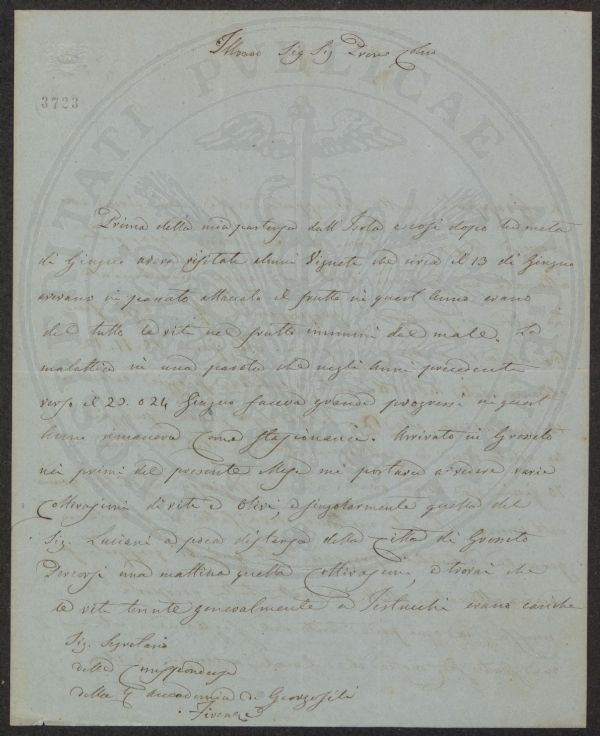 Illmo Sig Sig Prone Colmo
3723
Prima della mia partenza dall Isola e cosi dopo la metà
di Giugno aveva visitate alcuni Vigneti che circa il 13 di Giugno
avevano in passato attaccato il frutto in quest Anno erano
del tutto le viti nel frutto immuni dal male. La
malattia in una parola che negli Anni precedenti
verso il 20. o 24 Giugno faceva grandi progressi in quest
Anno rimaneva come stazionaria. Arrivato in Grosseto
nei primi del presente Mese mi portava a vedere varie
Coltivazioni di viti e Olivi, e singolarmente quella del
Sig. Luciani a poca distanza della Città di Grosseto
Percorsi una mattina quella Coltivazione, e trovai che
le viti tenute generalmente a Pestucchi erano cariche
Sig. Segretario
delle Corrispondenze
della Accademia de Georgofili
Firenze